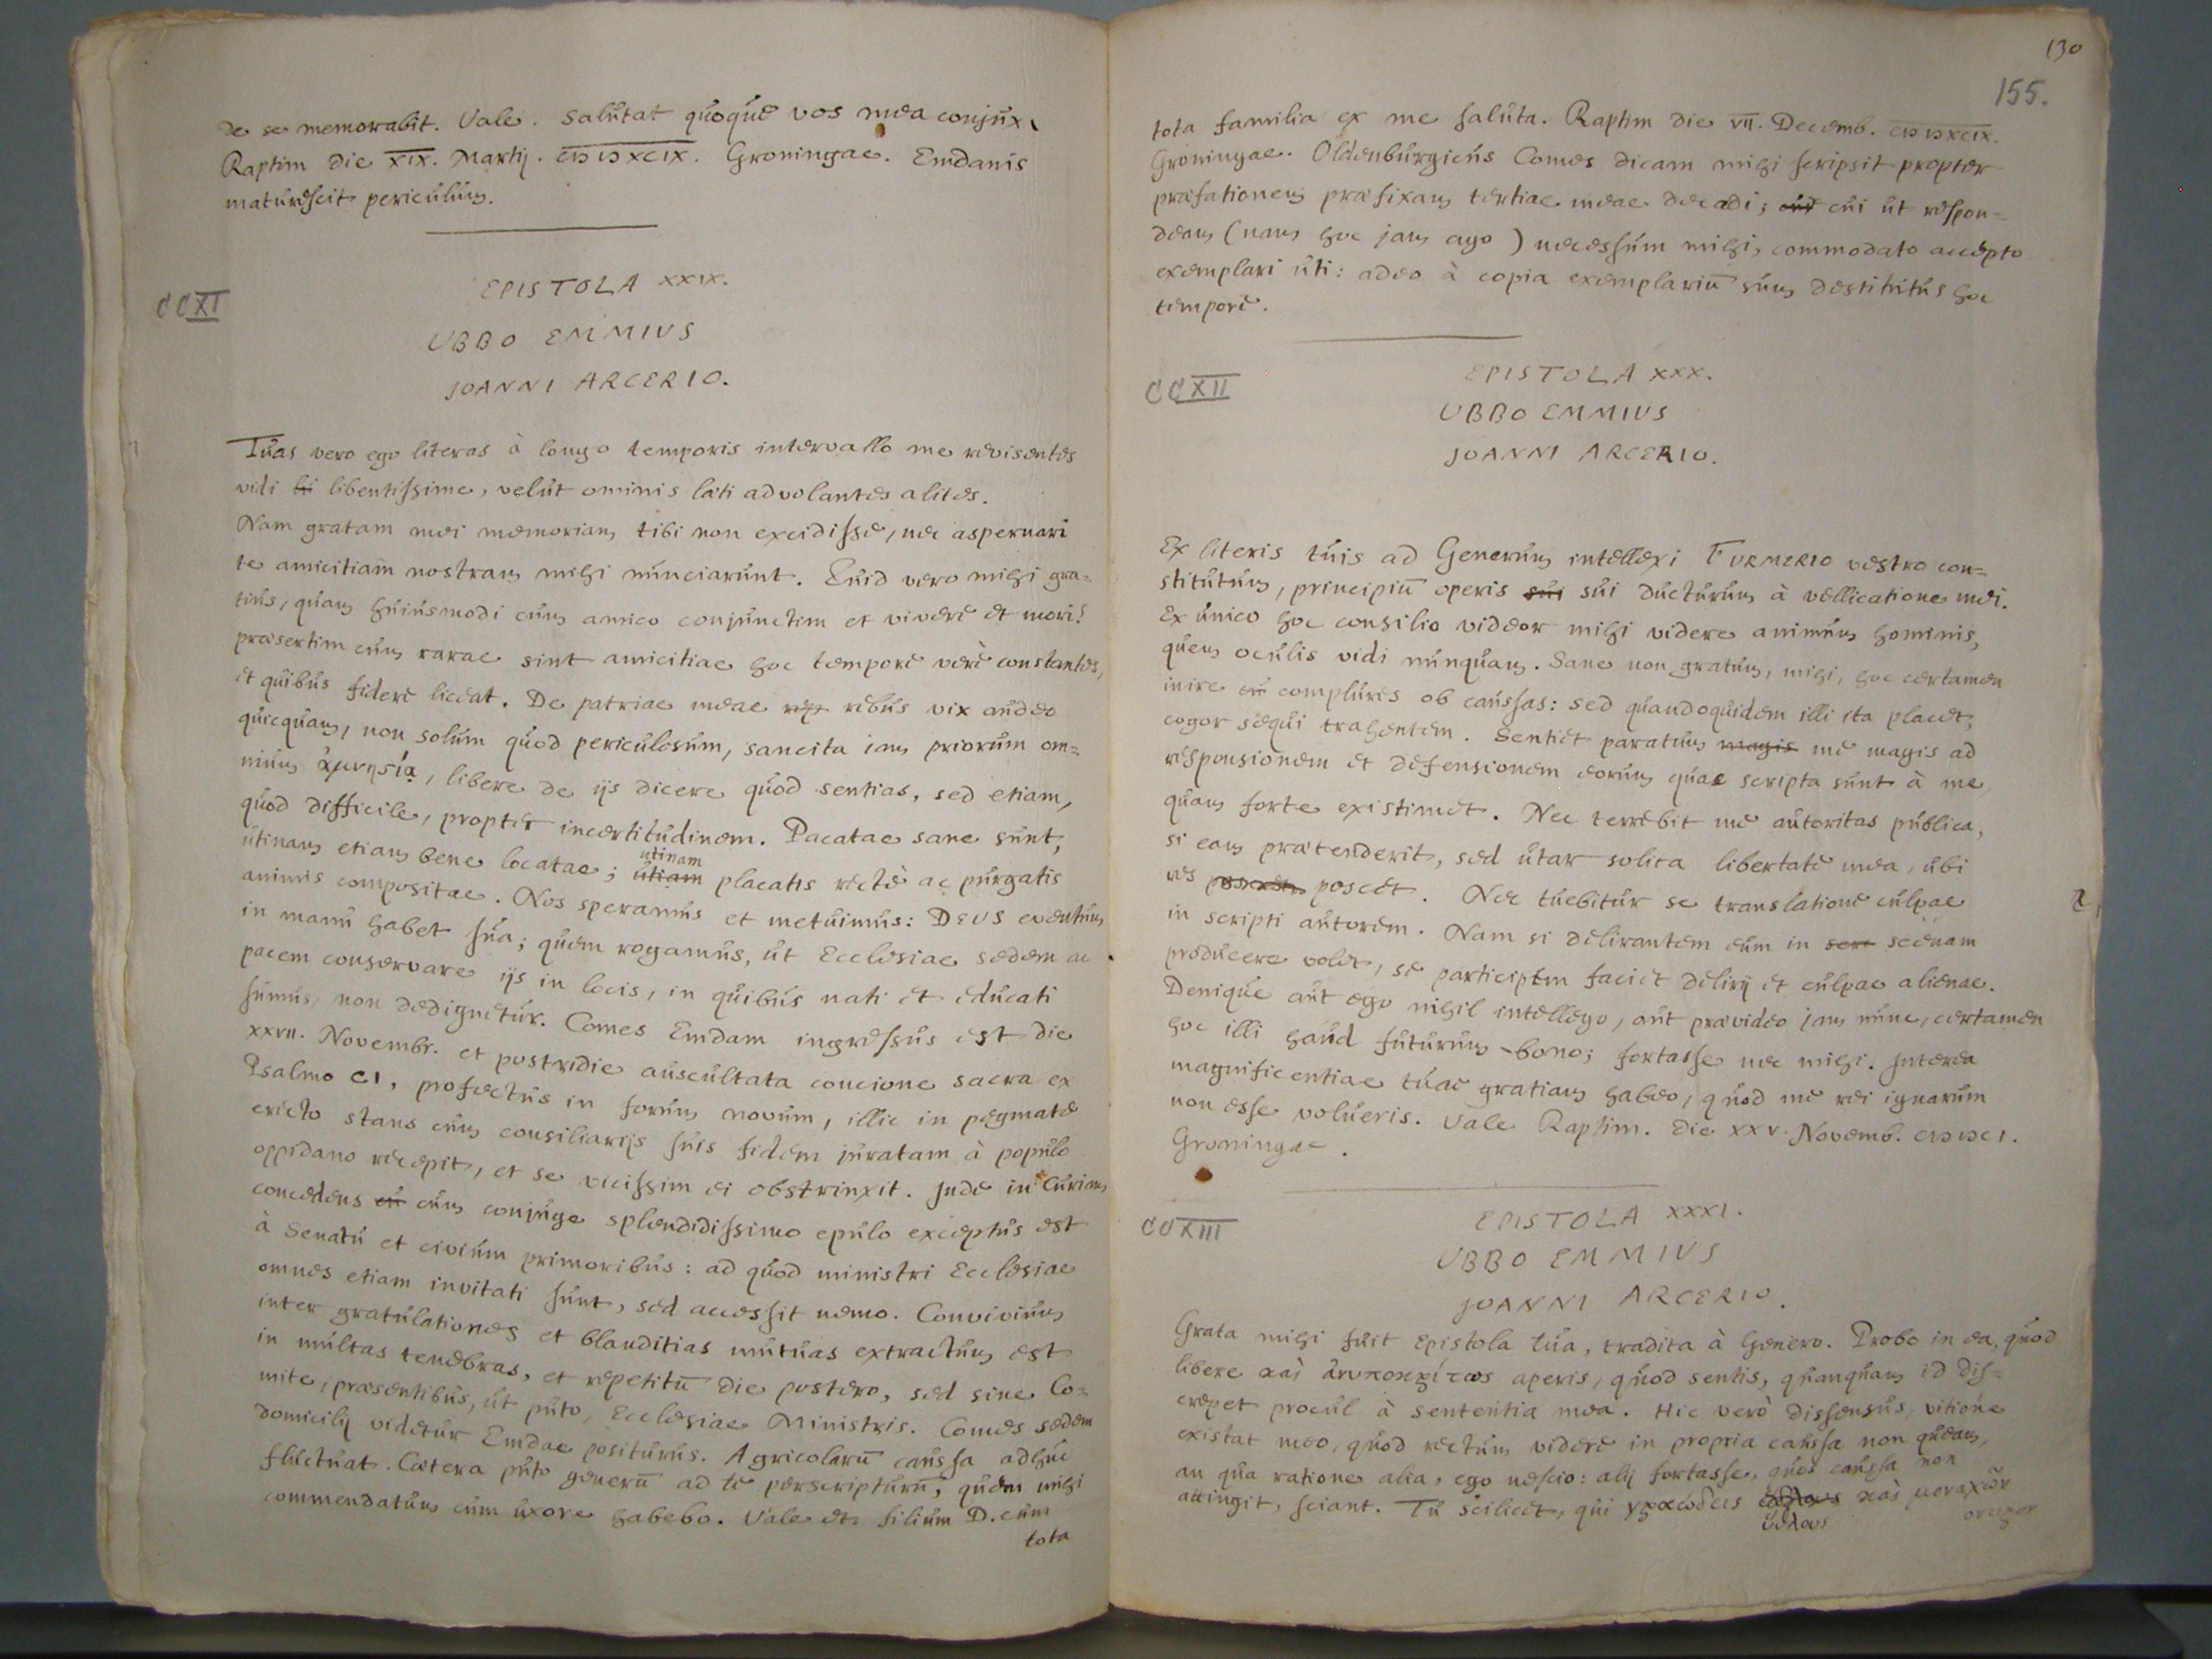 de se memorabit. Vale. Salutat quoque vos mea conjux.
Raptim die XIX. Martij. CIƆ IƆ XCIX. Groningae. Emdanis
maturescit periculum.
CCXI
EPISTOLA XXIX.
UBBO EMMIUS
JOANNI ARCERIO.
Tuas vero ego literas à longo temporis intervallo me revisentes
vidi libentissime, velut ominis laeti advolantes alites.
Nam gratam mei memoriam tibi non excidisse, nec aspernari
te amicitiam nostram mihi nunciarunt. Quid vero mihi gra=
tius, quam huiusmodi cum amico conjunctim et vivere et mori?
praesertim cum rarae sint amicitiae hoc tempore verè constantes,
et quibus fidere liceat. De patriae meae rebus vix audeo
quicquam, non solum quod periculosum, sancita iam priorum om=
nium ἀμνησίᾳ, libere de ijs dicere quod sentias, sed etiam,
quod difficile, propter incertitudinem. Pacatae sane sunt,
utinam etiam bene locatae; utiam utinam placatis rectè ac purgatis
animis compositae. Nos speramus et metuimus: DEUS eventum
in manu habet sua; quem rogamus, ut Ecclesiae sedem ac
pacem conservare ijs in locis, in quibus nati et educati
sumus, non dedignetur. Comes Emdam ingressus est die
XXVII. Novembr. et postridie auscultata concione sacra ex
Psalmo CI, profectus in forum novum, illic in pegmate
erecto stans cum consiliarijs suis fidem juratam à populo
oppidano recepit, et se vicissim ei obstrinxit. Inde in Curiam
concedens cum conjuge splendidissimo epulo exceptus est
à Senatu et civium primoribus: ad quod ministri Ecclesiae
omnes etiam invitati sunt, sed accessit nemo. Convivium
inter gratulationes et blanditias mutuas extractum est
in multas tenebras, et repetitū die postero, sed sine Co=
mite, praesentibus, ut puto, Ecclesiae Ministris. Comes sedem
domicilij videtur Emdae positurus. Agricolarū caussa adhuc
fluctuat. Caetera puto generū ad te perscripturū, quem mihi
commendatum cum uxore habebo. Vale et filium D. cum
tota
130
155.
tota familia ex me saluta. Raptim die VII. Decemb. CIƆ IƆ XCIX.
Groningae. Oldenburgicus Comes dicam mihi scripsit propter
praefationem praefixam tertiae meae decadi; cui ut respon=
deam (nam hoc jam ago) necessum mihi, commodato accepto
exemplari uti: adeo à copia exemplariū sum destitutus hoc
tempore.
CCXII
EPISTOLA XXX.
UBBO EMMIUS
JOANNI ARCERIO.
Ex literis tuis ad Generum intellexi FURMERIO vestro con=
stitutum, principiū operis sui sui ducturum à vellicatione mei.
Ex unico hoc consilio videor mihi videre animum hominis,
quem oculis vidi nunquam. Sane non gratum, mihi, hoc certamen
inire complures ob caussas: sed quandoquidem illi ita placet,
cogor sequi trahentem. Sentiet paratum magis me magis ad
responsionem et defensionem eorum quae scripta sunt à me,
quam forte existimet. Nec terrebit me autoritas publica,
si eam praetenderit, sed utar solita libertate mea, ubi
res poscet. Nec tuebitur se translatione culpae
in scripti autorem. Nam si delirantem eum in scenam
producere volet, se participem faciet delirij et culpae alienae.
Denique aut ego nihil intellego, aut praevideo jam nunc, certamen
hoc illi haud futurum bono; fortasse nec mihi. Interea
magnificentiae tuae gratiam habeo, quod me rei ignarum
non esse volueris. Vale Raptim. Die XXV. Novemb. CIƆ IƆ CI.
Groningae.
CCXIII
EPISTOLA XXXI.
UBBO EMMIUS
JOANNI ARCERIO.
Grata mihi fuit Epistola tua, tradita à Genero. Probo in ea, quod
libere καὶ ἀνυποκρίτως aperis, quod sentis, quanquam id dis=
crepet procul à sententia mea. Hic verò dissensus, vitiône
existat meo, quod rectum videre in propria caussa non queam,
an qua ratione alia, ego nescio: alij fortasse, quos caussa non
attingit, sciant. Tu scilicet, qui γραώδεις ὕθλους καὶ μοναχῶν